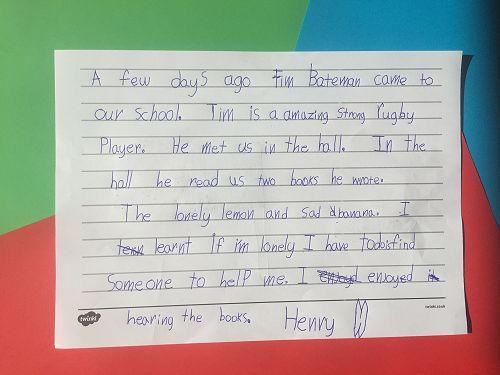 A few days ago Tim Bateman came to
our school. Tim is a amazing strong rugby
Player. He met us in the hall. In the
hall he read us two books he wrote.
The lonely lemon and sad banana. I
learnt if i'm lonely I have to do is find
someone to help me. I enjoyed
hearing the books. Henry
twinkl
twinkl.co.uk